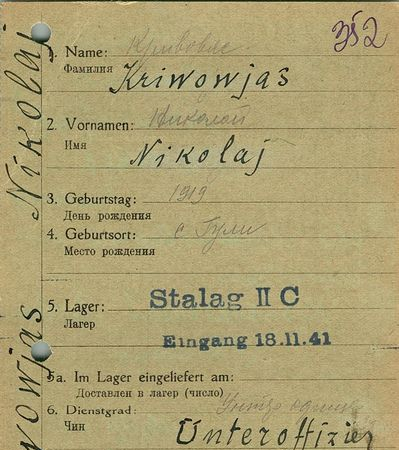 352
1. Name: Кривовяс
Фамилия
Kriwowjas
2. Vornamen: Николай
Имя
Nikolaj
3. Geburtstag: 1919
День рождения
4. Geburtsort: с Гули
Место рождения
5. Lager: Stalag II C
Лагер
Eingang 18.11.41
5a. Im Lager eingeliefert am:
Доставлен в лагер (число)
6. Dienstgrad:
Чин
Unteroffizier
wowjas Nikolaj